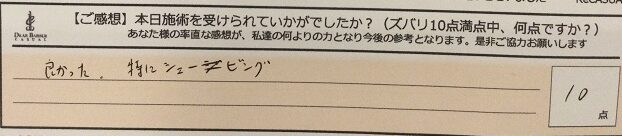 【ご感想】本日施術を受けられていかがでしたか？（ズバリ10点満点中、何点ですか？）
あなた様の率直な感想が、私達の何よりの力となり今後の参考となります。是非ご協力お願いします
DEAR BARBER
CASUAL
良かった。特にシェービング
10
点